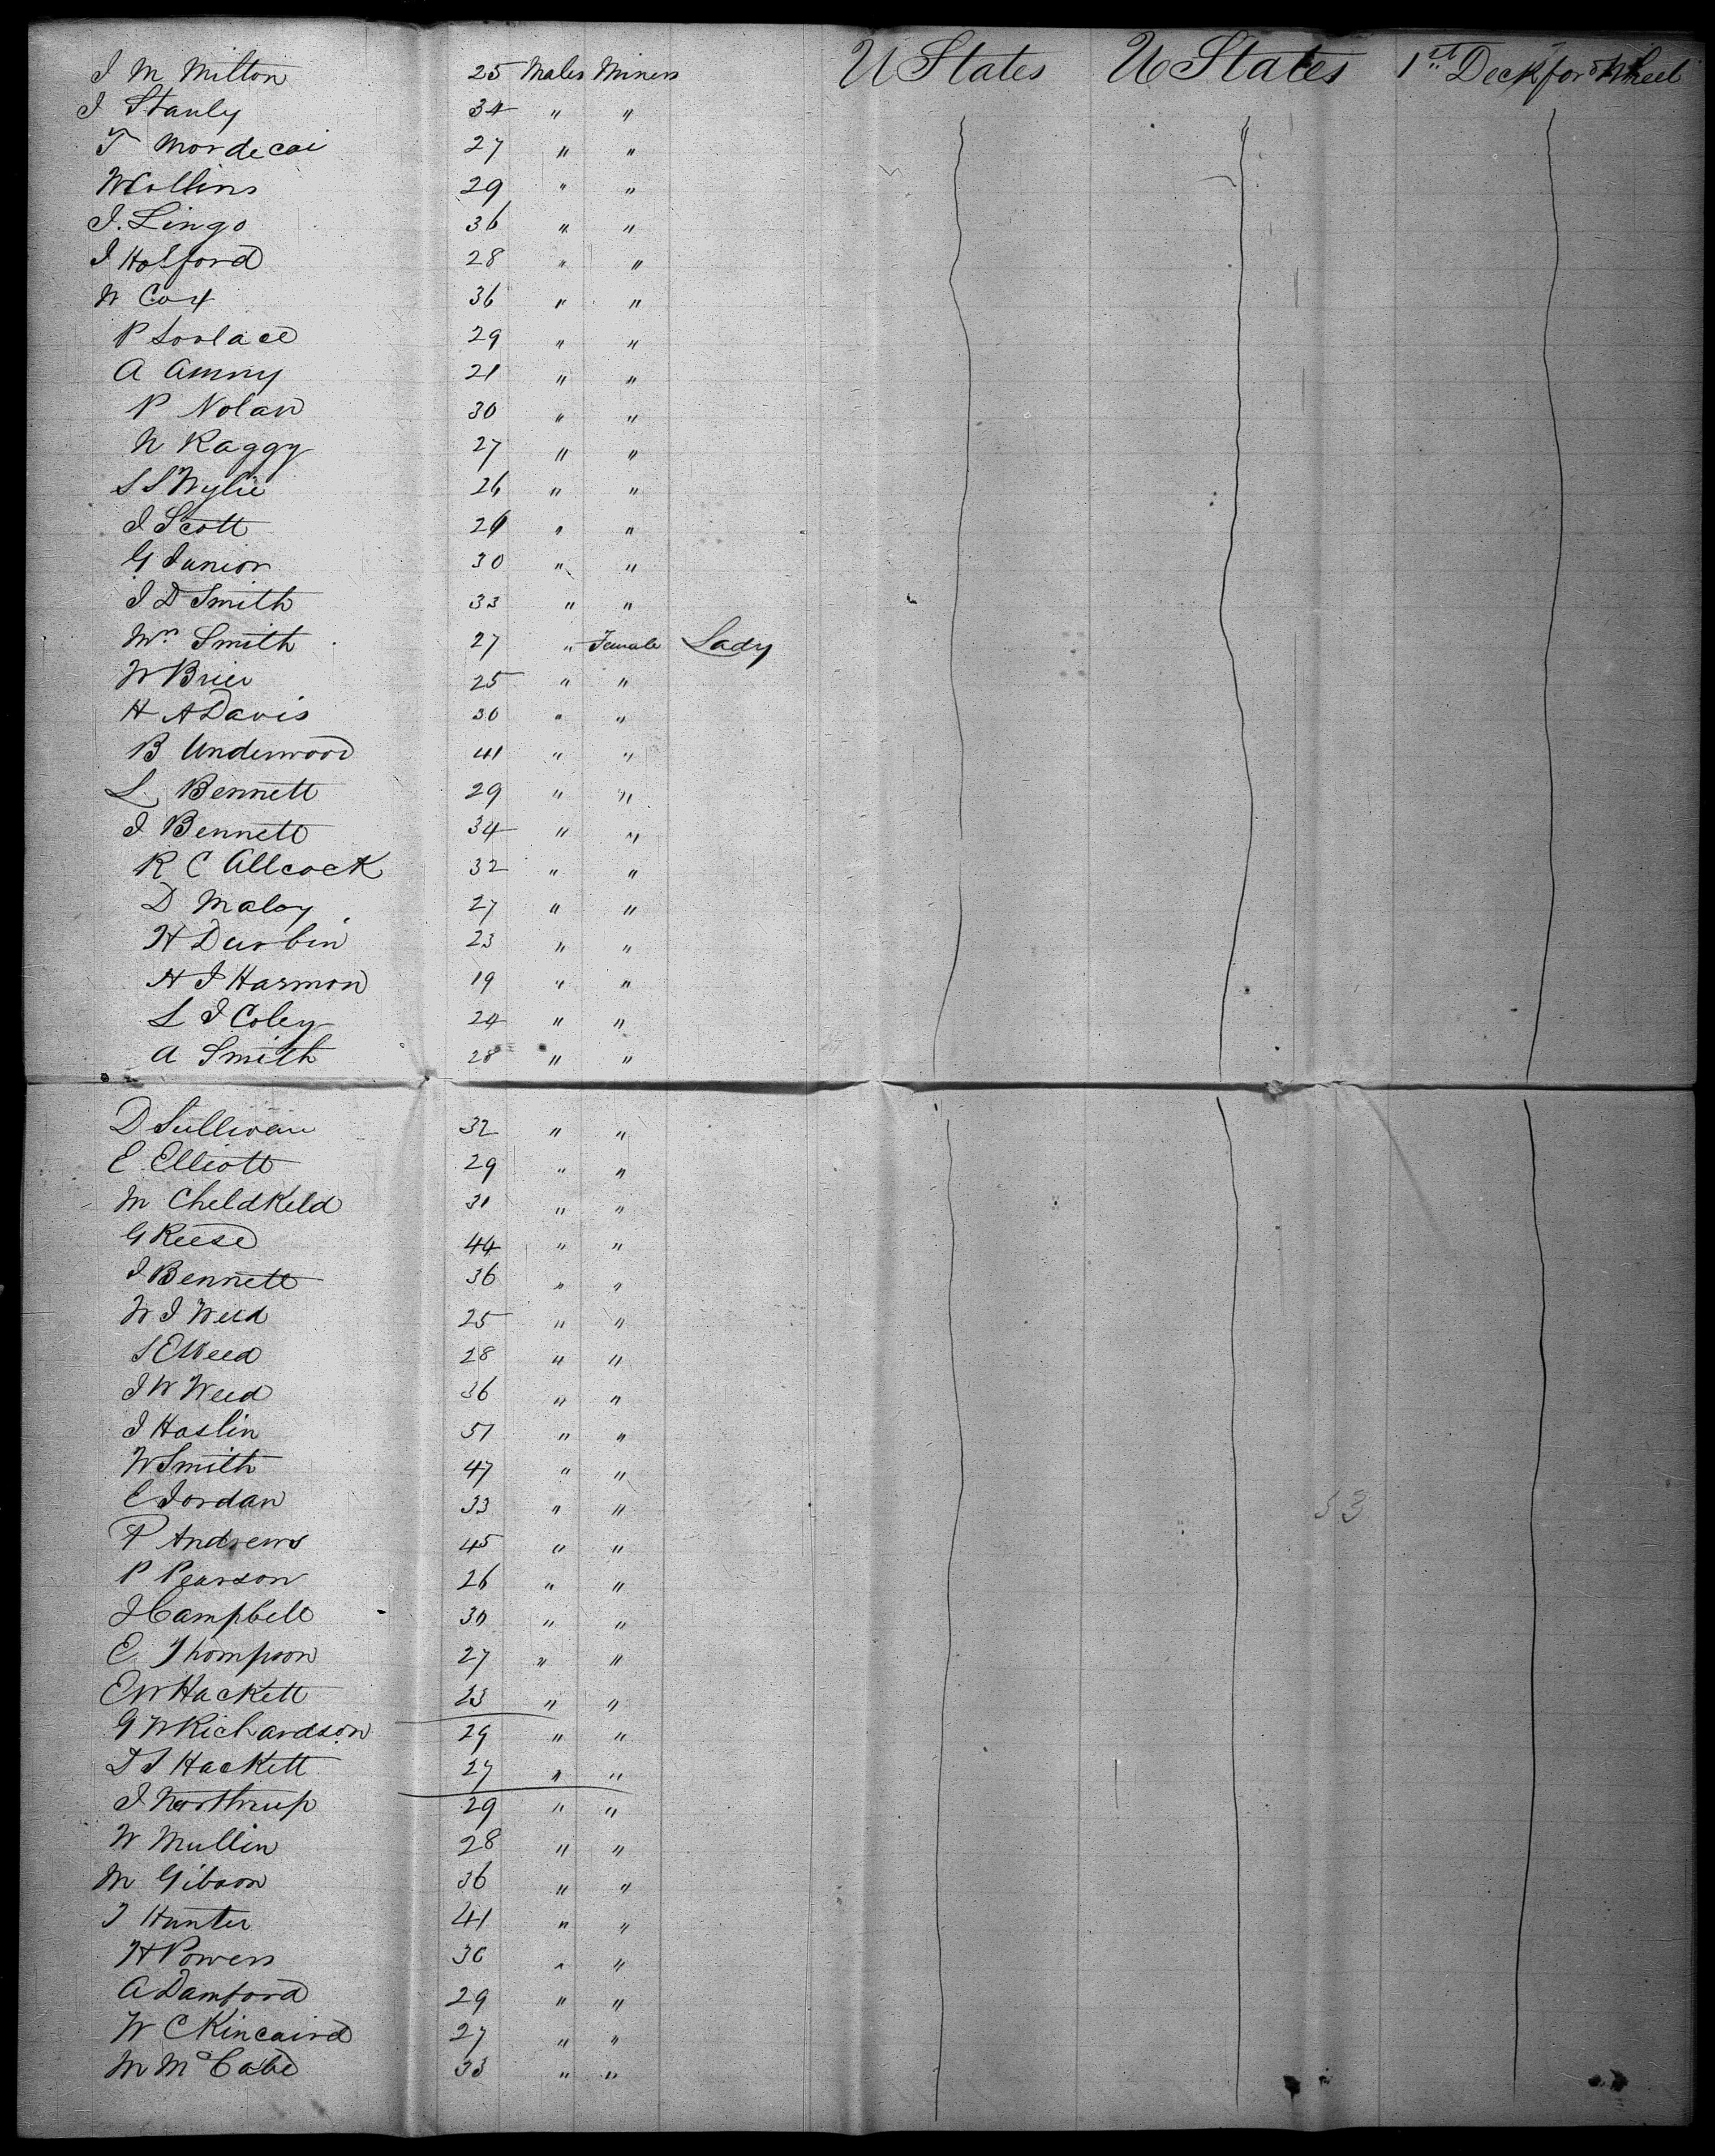 J M Milton 25 Males Miners U States U States 1st Deck for & Wheel
J Stanly 34 " "
T Mordecai 27 " "
W Collins 29 " "
J. Lingo 36 " "
J Halford 28 " "
W Cox 36 " "
P Lovlace 29 " "
A Ammy 21 " "
P Nolan 30 " "
N Raggy 27 " "
S S Wylie 26 " "
J Scott 26 " "
G Junior 30 " "
J D Smith 33 " "
Mrs Smith 27 " Female Lady
W Brier 25 " "
H A Davis 30 " "
B Underwood 41 " "
L Bennett 29 " "
J Bennett 34 " "
R C Allcock 32 " "
D Maloy 27 " "
H Durbin 23 " "
H J Harmon 19 " "
L J Coley 24 " "
A Smith 28 " "
D Sullivan 32 " "
E Elliott 29 " "
M Cheldkeld 31 " "
G Reese 44 " "
J Bennett 36 " "
W J Weed 25 " "
S E Weed 28 " "
J W Weed 36 " "
J Haslin 51 " "
W Smith 47 " "
C Jordan 33 " "
53
P Andrews 45 " "
P Pearson 26 " "
J Campbell 30 " "
E Thompson 27 " "
E W Hackett 23 " "
G W Richardson 29 " "
D S Hackett 27 " "
J Northrup 29 " "
W Mullin 28 " "
M Gibson 36 " "
J Hunter 41 " "
H Powers 30 " "
A Damford 29 " "
W C Kincaird 27 " "
M McCabe 33 " "